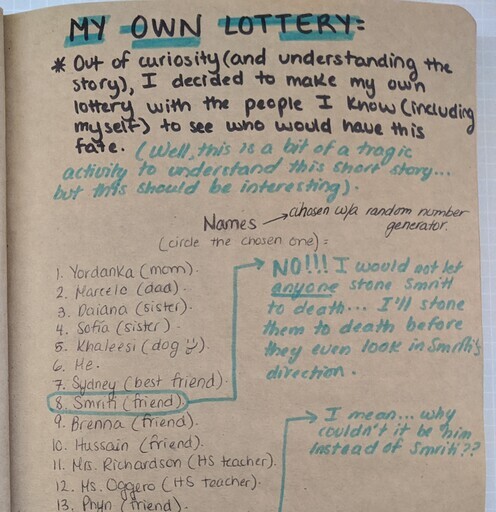 MY OWN LOTTERY:
* Out of curiosity (and understanding the
story), I decided to make my own
lottery with the people I know (including
myself) to see who would have this
fate. (Well, this is a bit of a tragic
activity to understand this short story...
but this should be interesting).
Names → chosen w/a random number
generator.
(circle the chosen one):
1. Yordanka (mom).
2. Marcelo (dad).
3. Daiana (sister).
4. Sofia (sister).
5. Khaleesi (dog).
6. Me.
7. Sydney (best friend).
8. Smriti (friend).
9. Brenna (friend).
10. Hussain (friend).
11. Mrs. Richardson (HS teacher).
12. Ms. Oggero (HS teacher).
13. Phyn (friend).
NO!!! I would not let
anyone stone Smriti
to death... I'll stone
them to death before
they even look in Smriti's
direction.
I mean... why
couldn't it be him
instead of Smriti??